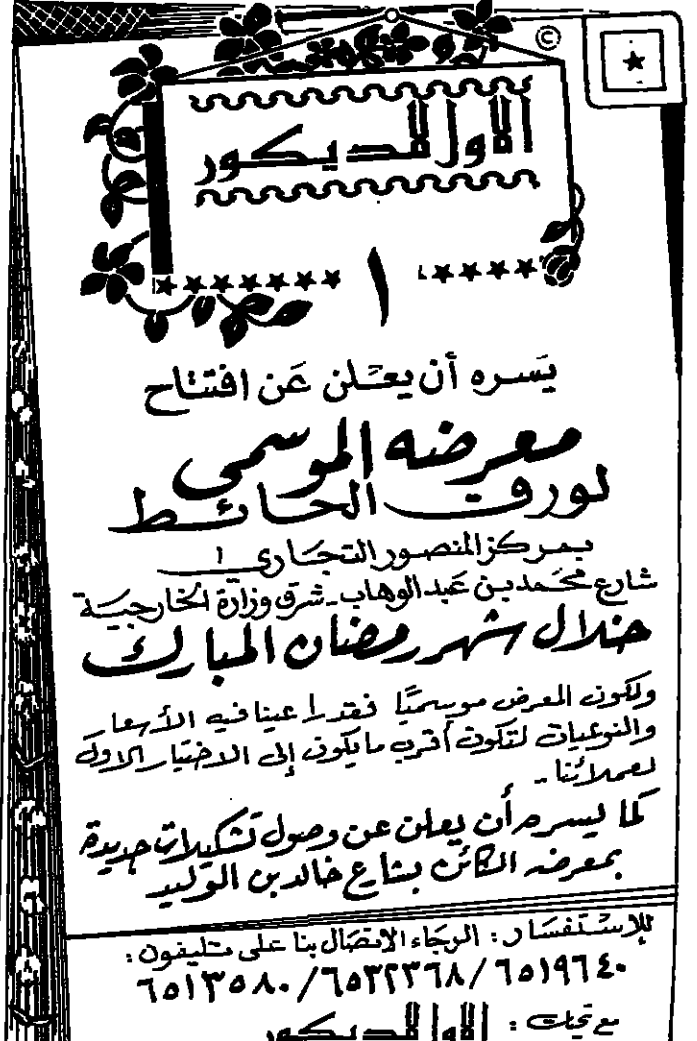 ©
الاول للديكور
١
يسره أن يعلن عن افتتاح
معرضه الموسمى
لورق الحائط
بمركز المنصور التجارى ١
شارع محمد بن عبد الوهاب - شرق وزارة الخارجية
خلال شهر رمضان المبارك
ولكون المعرض موسميًا فقد راعينا فيه الأسعار
والنوعيات لتكون أقرب مايكون إلى الاختيار الاول
لعملائنا -
كما يسره أن يعلن عن وصول تشكيلات جديدة
بمعرضه الكائن بشارع خالد بن الوليد
للإستفسار : الرجاء الاتصال بنا على تليفون :
٦٥١٩٦٤٠ / ٦٥٣٢٣٦٨ / ٦٥١٣٥٨٠
مع تحيات : الاول للديكور